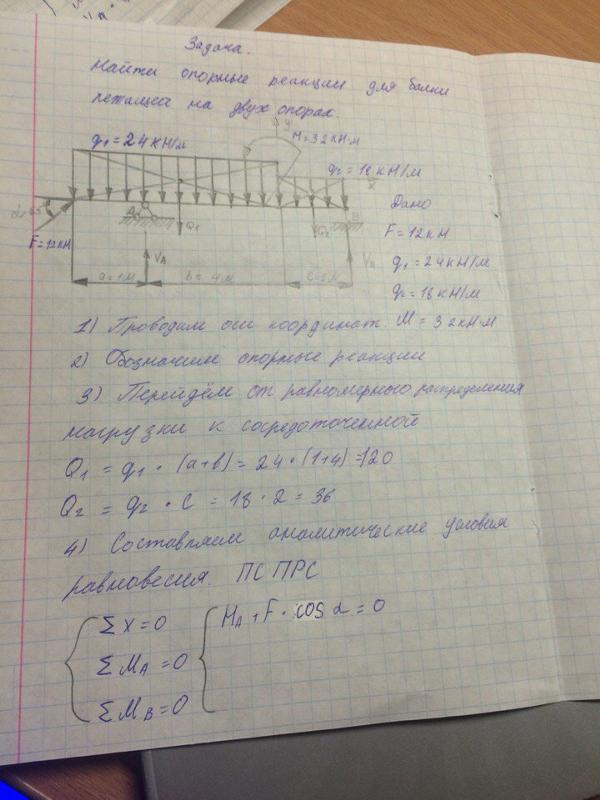 Задача.
Найти опорные реакции для балки
лежащей на двух опорах.
q₁ = 24кН/м
y
M = 32кН·м
q₂ = 18кН/м
x
F=12кН
A
Q₁
Q₂
B
V_A
a=1м
b = 4м
c=2м
Дано
F = 12кН
q₁ = 24кН/м
q₂ = 18кН/м
M = 32кН·м
1) Проводим оси координат.
2) Обозначим опорные реакции
3) Перейдём от равномерного распределения
нагрузки к сосредоточенной
Q₁ = q₁ · (a+b) = 24 · (1+4) = 120
Q₂ = q₂ · c = 18 · 2 = 36
4) Составляем аналитические условия
равновесия. ПС ПРС
Σ X = 0
H_A + F · cos α = 0
Σ M_A = 0
Σ M_B = 0